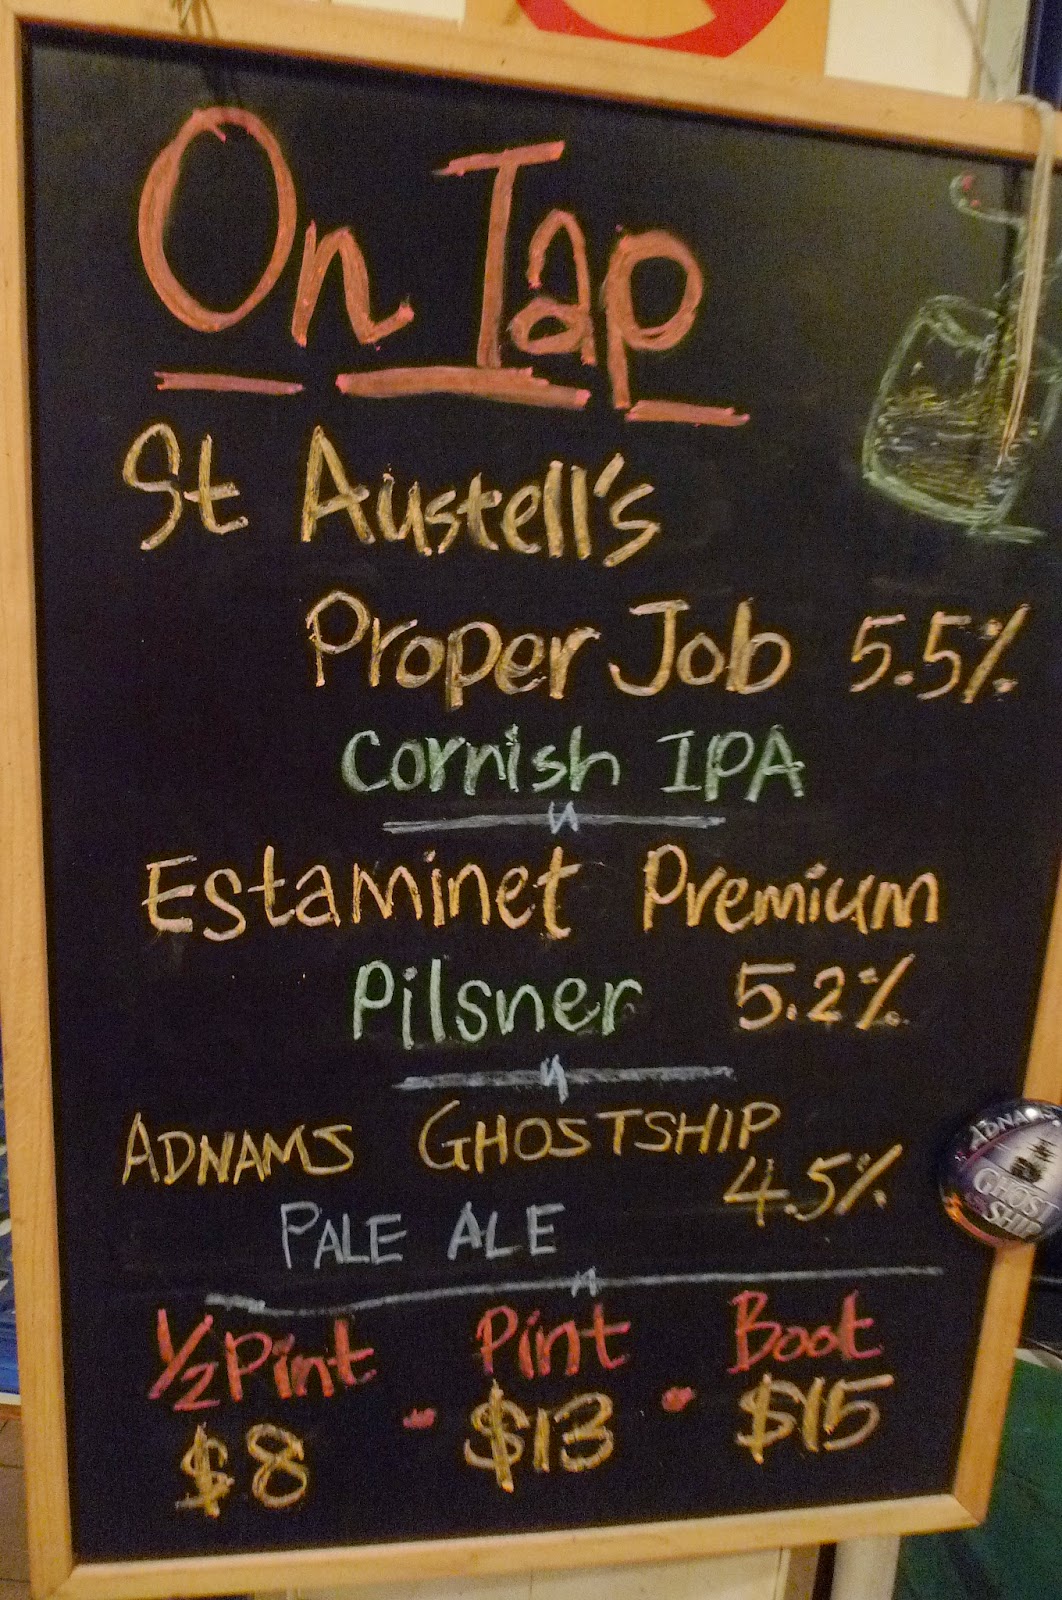 On Tap
St Austell's
Proper Job 5.5%
Cornish IPA
Estaminet Premium
Pilsner 5.2%
ADNAMS GHOSTSHIP
4.5%
PALE ALE
ADNAMS
GHOST
SHIP
1/2 Pint Pint Boot
$8 - $13 - $15